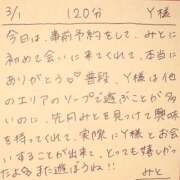 3/1 120分 Y様
今日は、事前予約をして、みとに
初めて会いに来てくれて、本当に
ありがとう♡普段、Y様は他
のエリアのソープで遊ぶことが多
いのに、先日みとを見つけて興味
を持ってくれて、実際にY様とお会
いすることが出来て、とっても嬉しかっ
たよ♪また遊ぼうね!!
みと